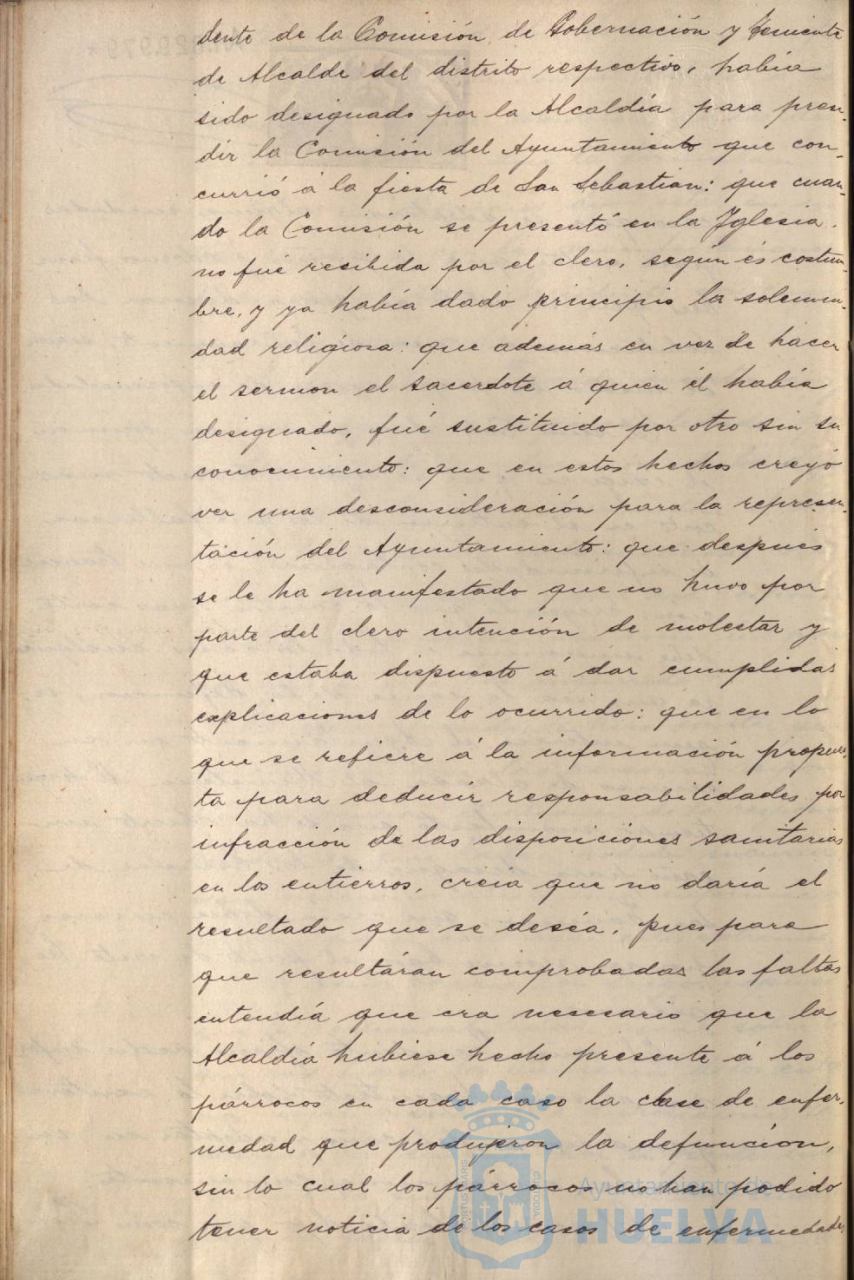 dente de la Comisión de Gobernación y Teniente
de Alcalde del distrito respectivo, había
sido designado por la Alcaldía para presi-
dir la Comisión del Ayuntamiento que con-
currió á la fiesta de San Sebastian: que cuan-
do la Comisión se presentó en la Yglesia,
no fué resibida por el clero, según és costum-
bre, y ya había dado principio la solemni-
dad religiosa: que además en vez de hacer
el sermon el sacerdote á quien él había
designado, fué sustituido por otro sin su
conocimiento: que en estos hechos creyó
ver una desconsideración para la represen-
tación del Ayuntamiento: que despues
se le ha manifestado que no huvo por
parte del clero intención de molestar y
que estaba dispuesto á dar cumplidas
explicaciones de lo ocurrido: que en lo
que se refiere á la información propues-
ta para deducir responsabilidades por
infracción de las disposiciones sanitarias
en los entierros, creia que no daría el
resultado que se deséa, pues para
que resultáran comprobadas las faltas
entendía que era nesesario que la
Alcaldía hubiese hecho presente á los
párrocos en cada caso la clase de enfer-
medad que produjeron la defunción,
sin lo cual los párrocos no han podido
tener noticia de los casos de enfermedades
Ayuntamiento de
HUELVA